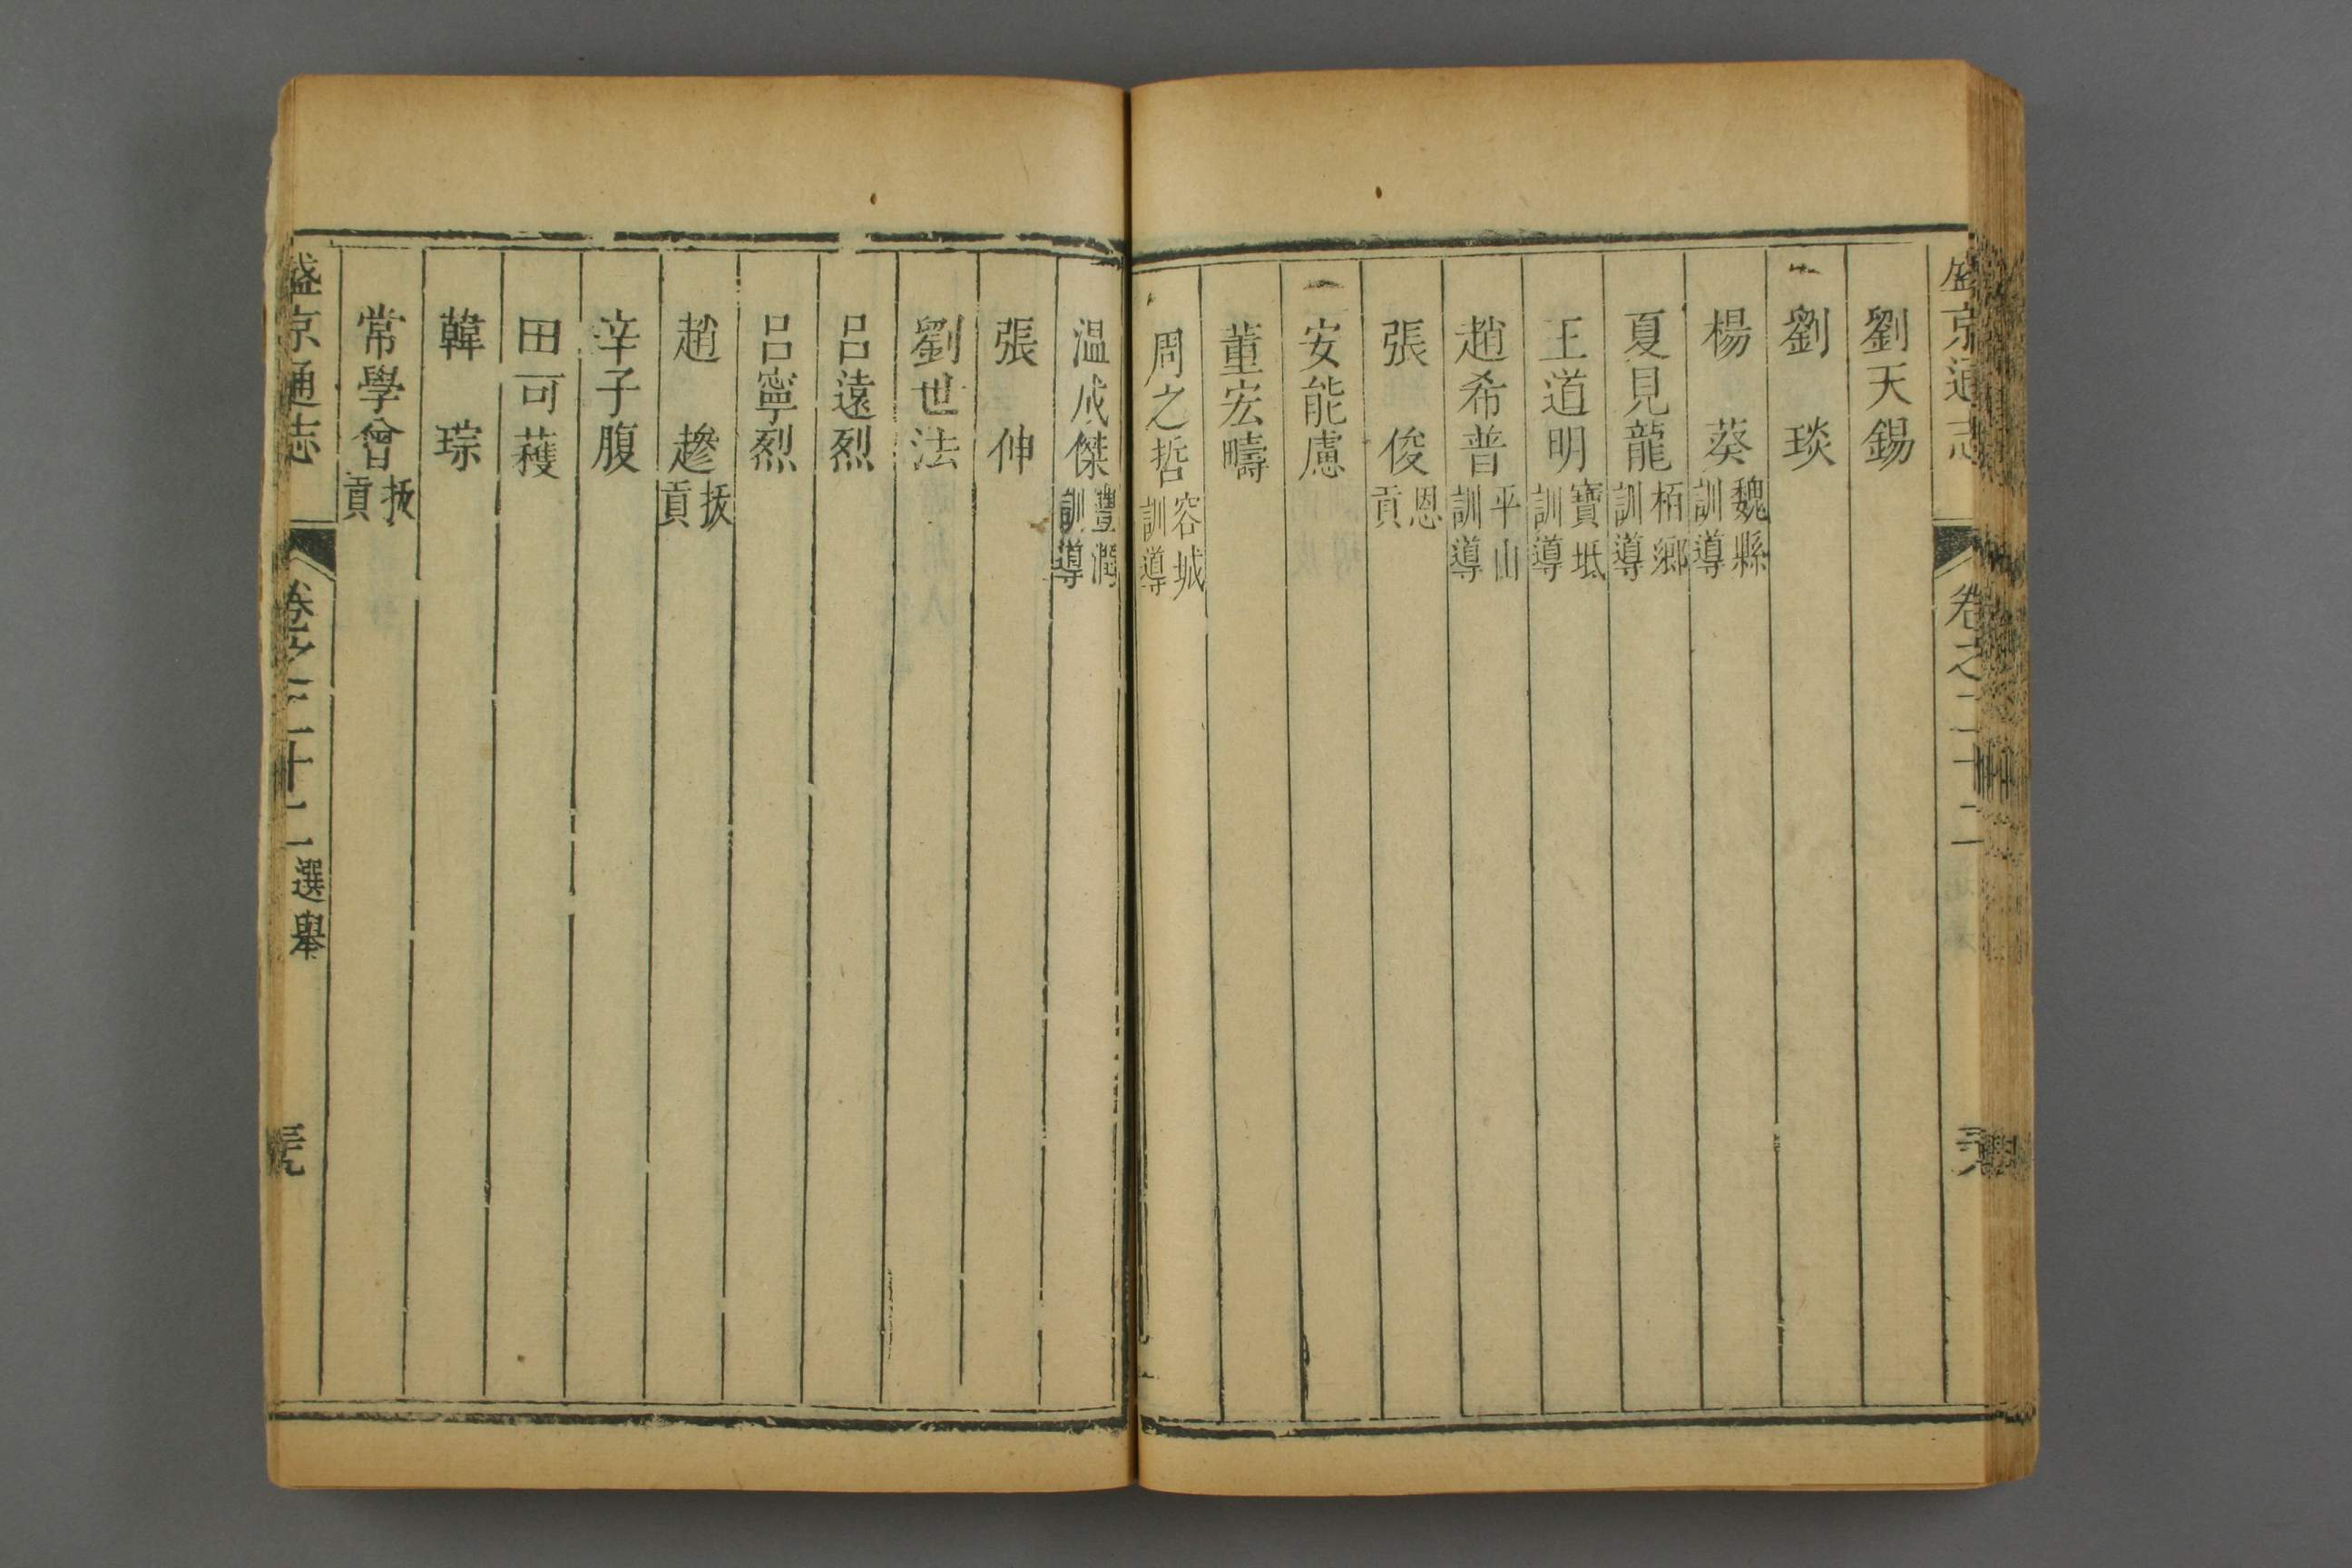 盛京通志 卷之二十二
劉天錫
劉 琰
楊 葵 魏縣訓導
夏見龍 栢鄉訓導
王道明 寶坻訓導
趙希普 平山訓導
張 俊 恩貢
安能慮
董宏疇
周之哲 容城訓導
温成傑 豐潤訓導
張 伸
劉世法
呂遠烈
呂寧烈
趙 趁 拔貢
辛子腹
田可穫
韓 琮
常學曾 拔貢
盛京通志 卷之二十二 選舉